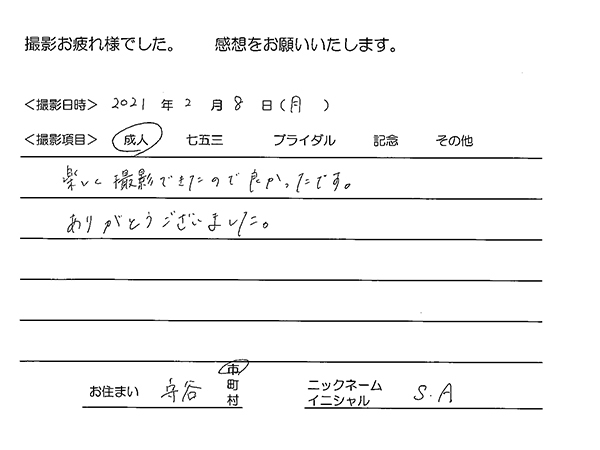 撮影お疲れ様でした。　感想をお願いいたします。
＜撮影日時＞ 2021 年 2 月 8 日（月　）
＜撮影項目＞ 成人　七五三　ブライダル　記念　その他
楽しく撮影できたので良かったです。
ありがとうございました。
お住まい 守谷 市 町 村　ニックネーム イニシャル S.A